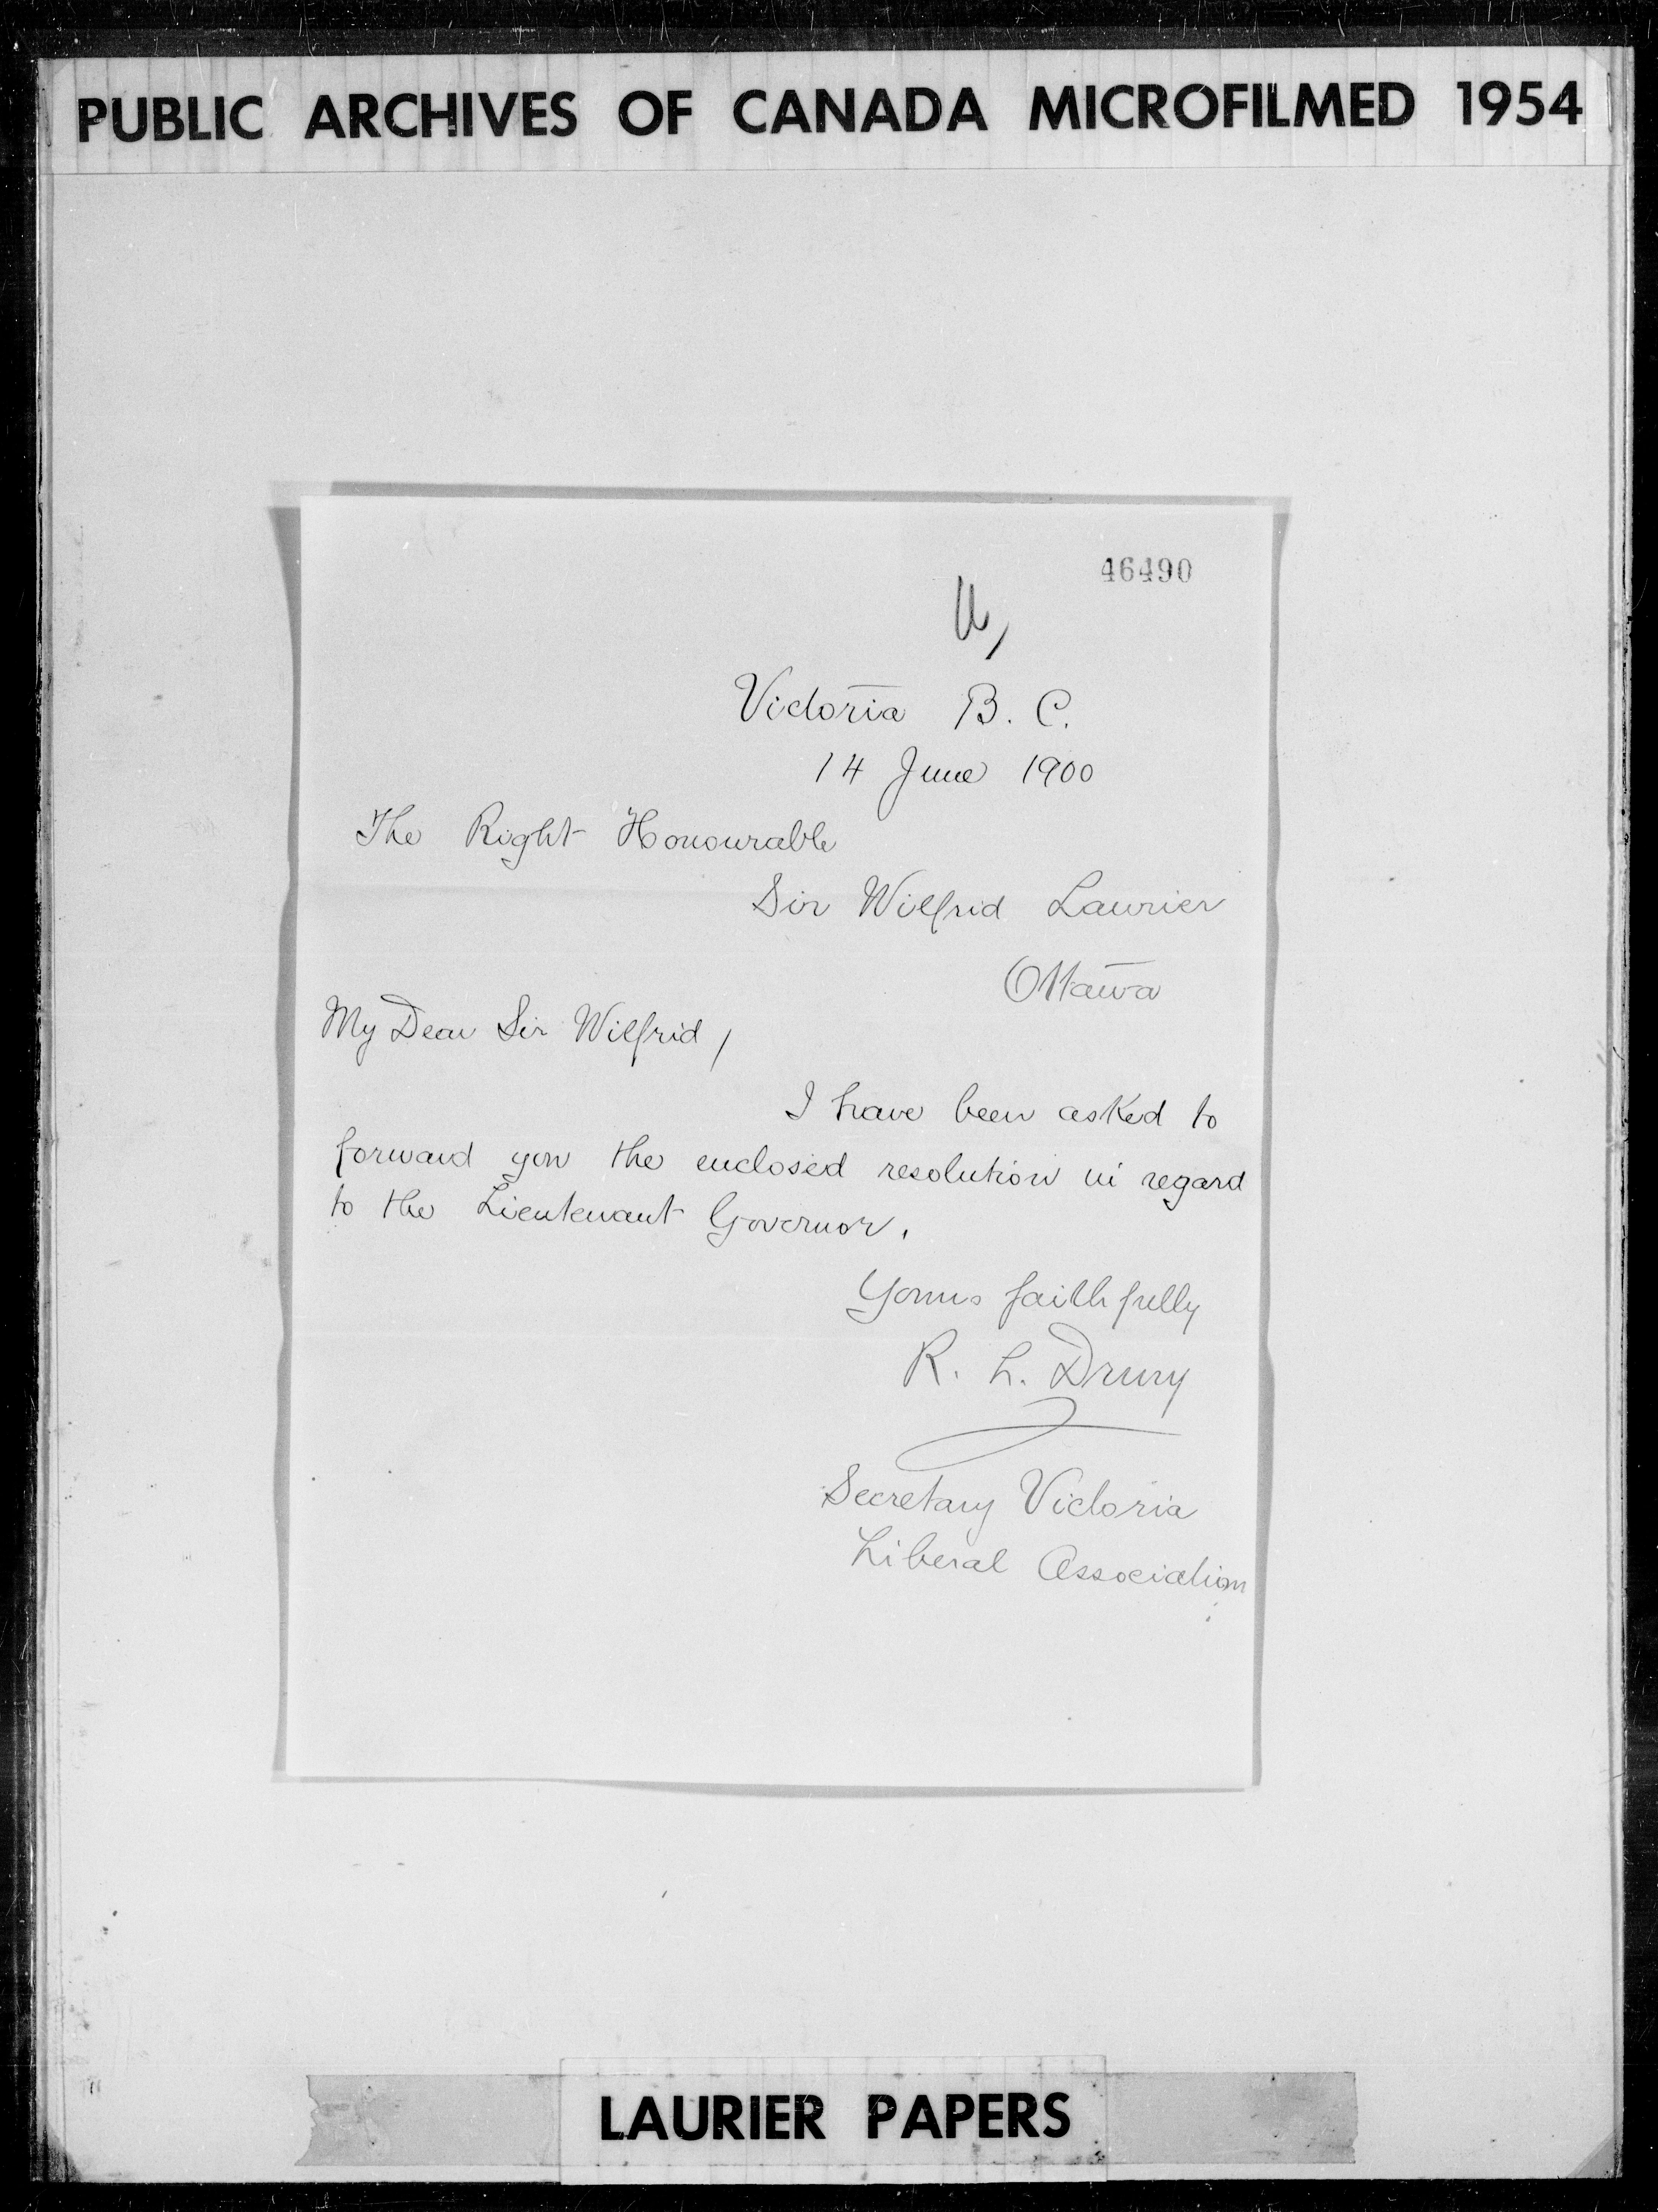 PUBLIC ARCHIVES OF CANADA MICROFILMED 1954
46490
Victoria B. C.
14 June 1900
The Right Honourable
Sir Wilfrid Laurier
Ottawa
My Dear Sir Wilfrid,
I have been asked to
forward you the enclosed resolution in regard
to the Lieutenant Governor.
Yours faithfully
R. L. Drury
Secretary Victoria
Liberal Association
LAURIER PAPERS